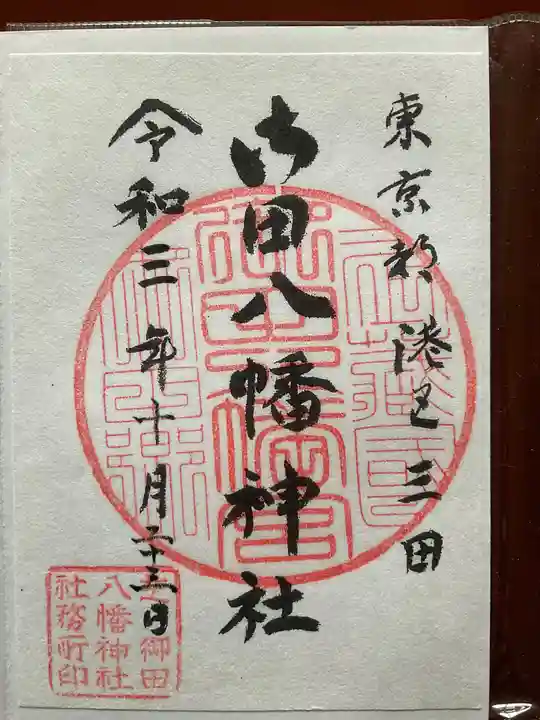 東京都港区三田
御田八幡神社
令和三年十月二十三日
御田
八幡神社
社務所印